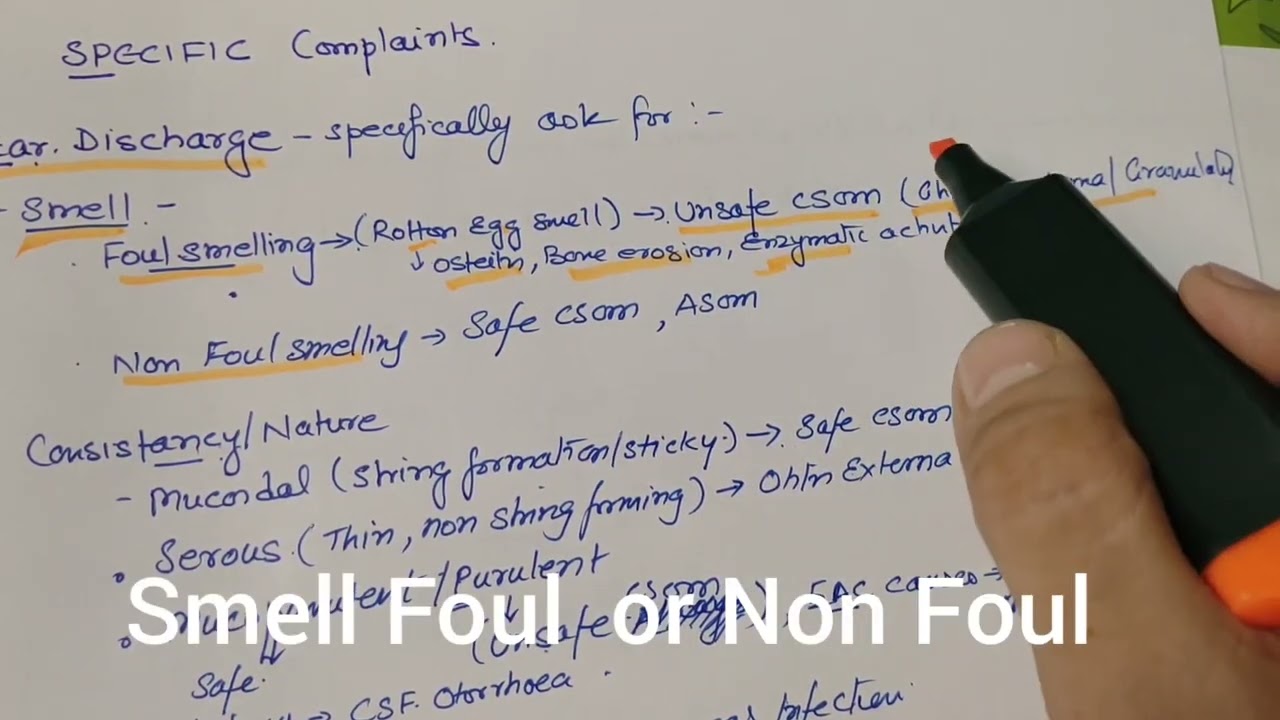 SPECIFIC Complaints.
Ear. Discharge - specifically ask for :-
- Smell. -
Foul smelling → (Rotton Egg smell) → Unsafe CSOM ( / Granulat
↓ osteitn, Bone erosion, Enzymatic
Non Foul smelling → Safe CSOM, ASOM
Consistancy/Nature
- Mucoidal (String formation/sticky.) → Safe CSOM
Serous. (Thin, non string forming) → Otitn Externa
/Purulent
(Unsafe CSOM), EAC causes →
Safe.
→ CSF. Otorrhoea.
Infection.
Smell Foul or Non Foul